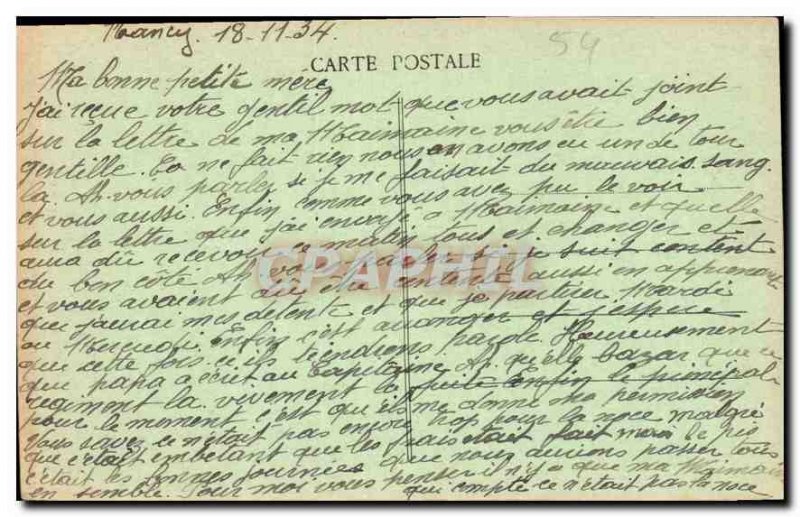 Nancy. 18-11-34.
54
CARTE POSTALE
Ma bonne petite mère
j'ai reçue votre gentil mot que vous avait joint
sur la lettre de ma Maimaine vous ete bien
gentille. Ca ne fait rien nous en avons eu un de tour
la. Ah vous parlez si je me faisait du mauvais sang
et vous aussi. Enfin comme vous avez pu le voir
sur la lettre que j'ai envoyé a Maimaine et quelle
aura dû recevoir ce matin tous et changer et
du bon côté. Ah vous si je suit content
et vous avaient dû etre contente aussi en apprenant
que j'aurai mes detente et que je partirer Mardi
ou Mercredi. Enfin c'est arranger et j'espere
que cette fois ci ils tiendrons parole Heureusement
que papa a ecrit au Capitaine. Ah quelle bazar que ce
regiment la. vivement la fuite Enfin le principal
pour le moment c'est qu'ils me donne ma permission
Vous savez ce n'était pas encore trop pour la noce malgré
que c'était embetant que les frais etait fait mais le pis
c'était les bonnes journées que nous devions passer tous
en semble. Pour moi vous penser il n'y a que ma Maimaine
qui compte ce n'était pas la noce
CPAPHIL